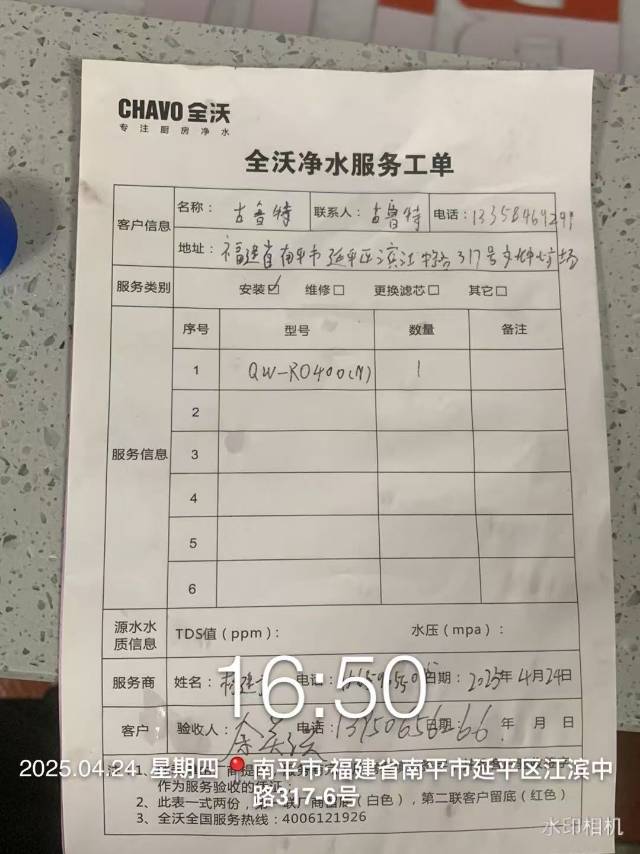 CHAVO 全沃
专注厨房净水
全沃净水服务工单
客户信息
名称： 古鲁特 联系人： 古鲁特 电话：
地址： 福建省南平市延平区滨江中路317号
服务类别 安装☑ 维修□ 更换滤芯□ 其它□
服务信息
序号 型号 数量 备注
1 QW-RO400(N) 1
2
3
4
5
6
源水水质信息 TDS值（ppm）： 水压（mpa）：
服务商 姓名： 电话： 日期： 2025年4月24日
客户 验收人： 电话： 日期： 年 月 日
16:50
2025.04.24 星期四 南平市·福建省南平市延平区江滨中
路317-6号
注：1、
作为服务验收的凭证
2、此表一式两份，（白色），第二联客户留底（红色）
3、全沃全国服务热线：4006121926
水印相机